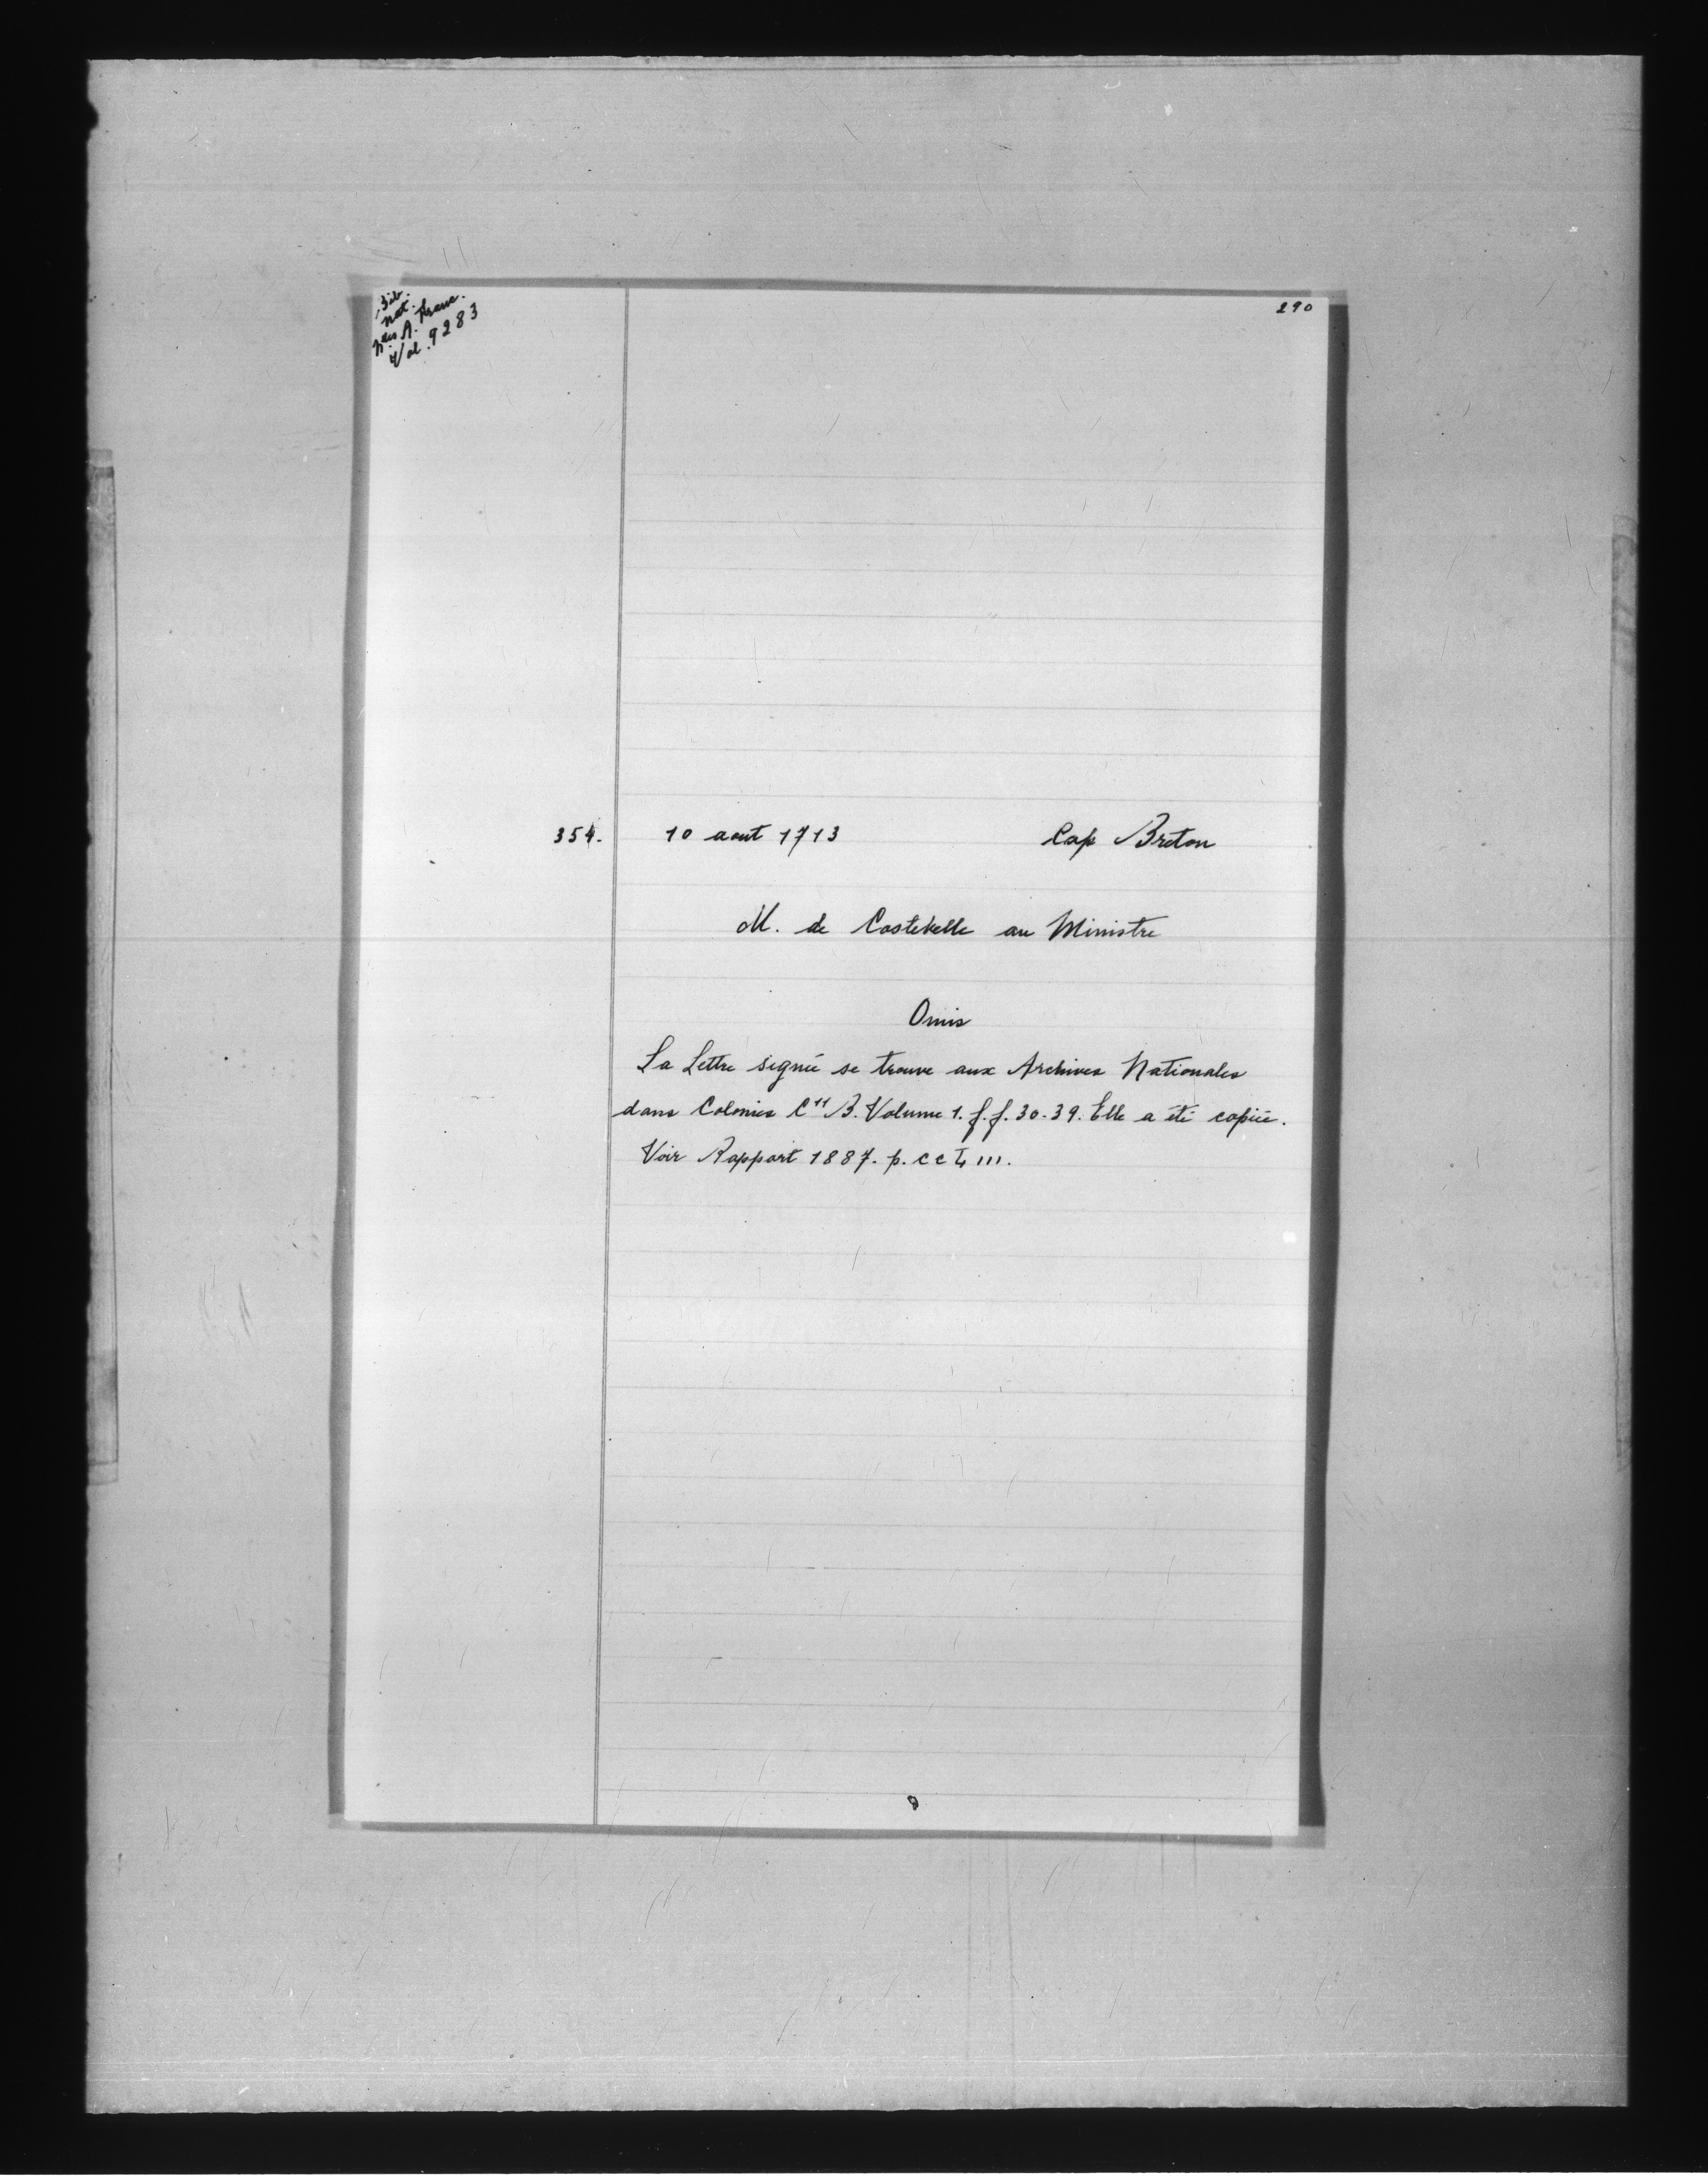 Bib.
nat.
Nelles A. franc.
Vol. 9283
290
354. 10 aout 1713 Cap Breton
M. de Costebelle au Ministre
Omis
La Lettre signée se trouve aux Archives Nationales
dans Colonies C11 B. Volume 1. f.f. 30-39. Elle a été copiée.
Voir Rapport 1887. p. cc